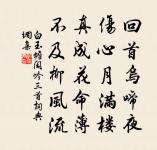 回首烏啼夜
傷心月滿樓
真成花命薄
不及柳風流
白玉蟾閨吟三首詞典
集